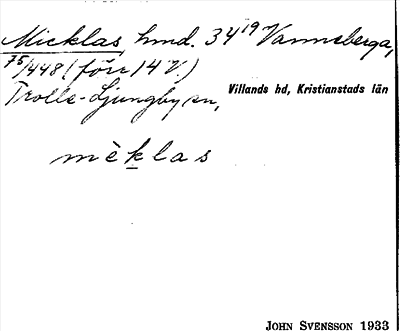 Micklas, hmd. 34¹⁹ Vanneberga,
⁷⁵/448 (förr 14 V.)
Trolle-Ljungby sn, Villands hd, Kristianstads län
mèklas
JOHN SVENSSON 1933